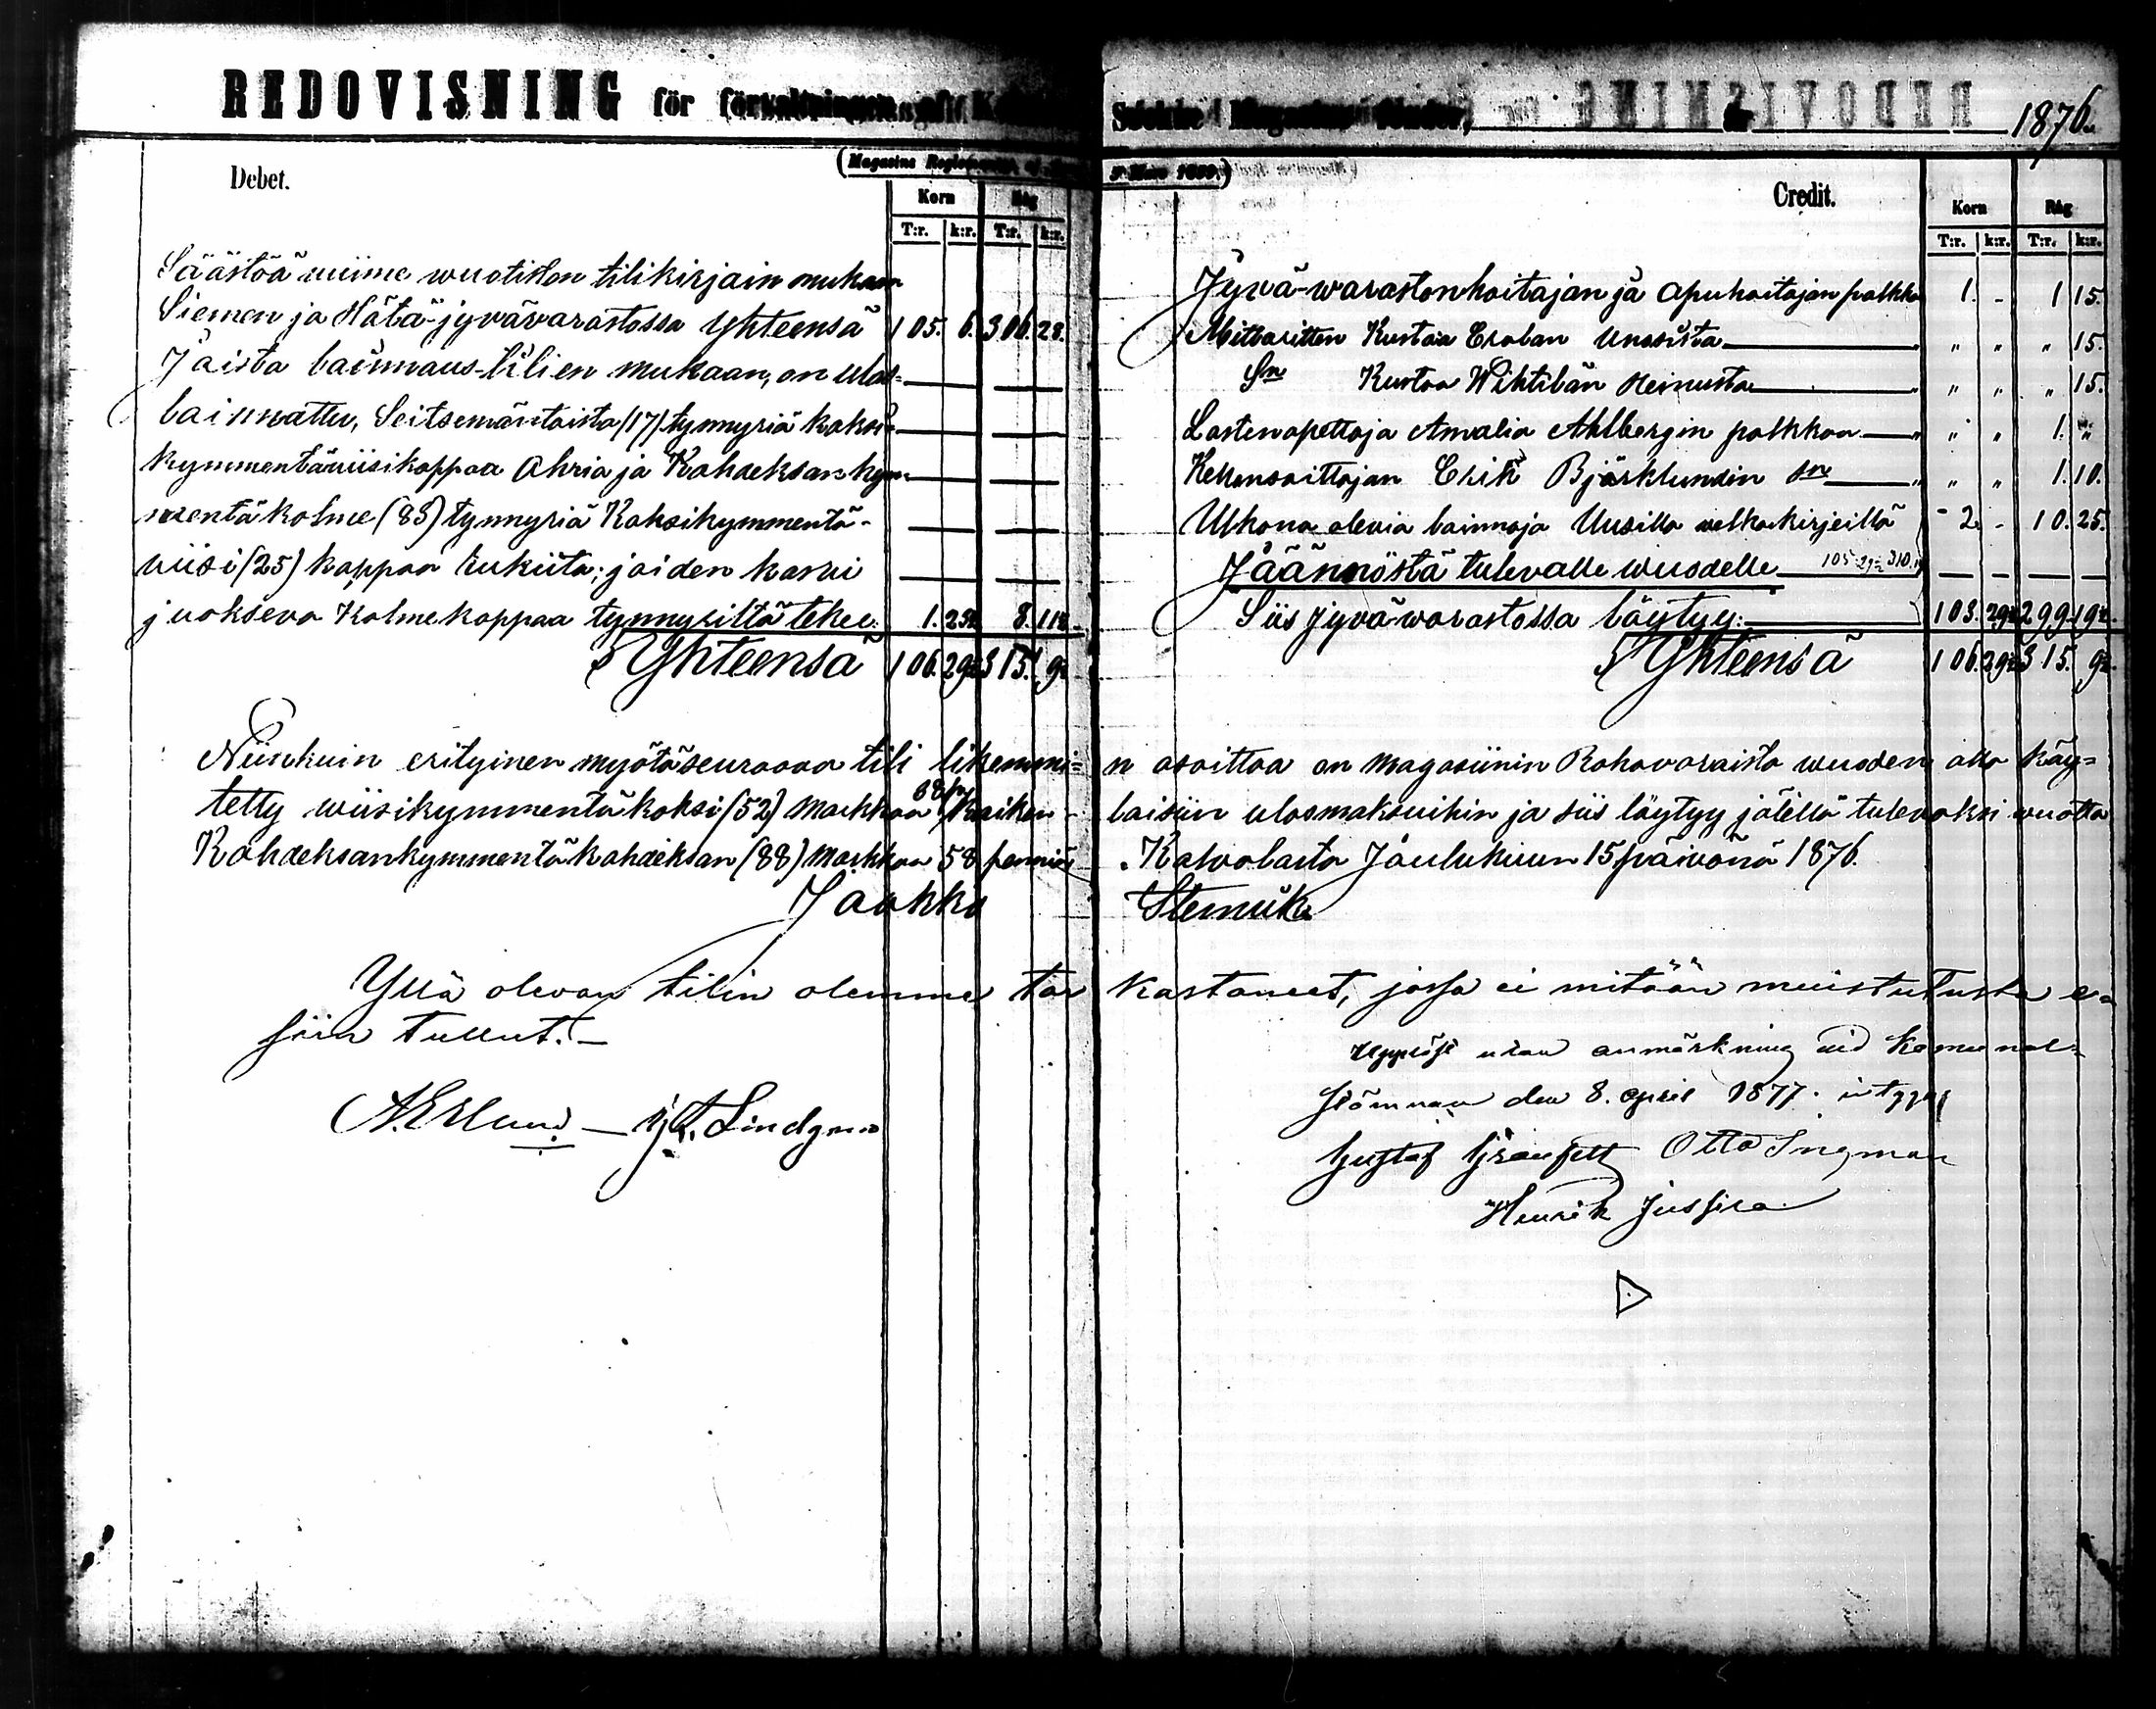 REDOVISNING för förvaltningen af
Sockne Magasins 1876.
(Magasins Reglementet af
Debet.
Korn Råg
T:r. k:r. T:r. k:r.
Säästöä viime wuotisten tilikirjain mukaan
Siemen ja Hätä-jyvävarastossa Yhteensä 105. 6. 306. 28.
Jaista lainnaus-tilien mukaan, on ulos-
lainnattu, Seitsemäntoista /17/ tynnyriä kaksi-
kymmentäviisi kappaa Ohria ja Kahdeksankym-
mentä kolme (83) tynnyriä Kaksikymmentä-
viisi (25) kappaa Rukiita; joiden kasvu
juokseva Kolme kappaa tynnyriltä tekee: 1. 23½ 8. 11½
Yhteensä 106. 29½ 315. 9½
Credit.
Korn Råg
T:r. k:r. T:r. k:r.
Jyvä-warastonhoitajan ja apuhoitajan palkka 1. - 1 15.
Mittaritten Kustaa Erolan Unosista " " " 15.
Sn Kustaa Wihtilän Heinusta " " " 15.
Lastenopettaja Amalia Ahlbergin palkkaa " " 1. "
Kellonsoittajan Erik Björklundin sn " " 1. 10.
Ulkona olevia lainnoja Uusilla velkakirjeillä 2. - 10. 25.
Jäännöstä tulevalle wuodelle 105 29½ 310.
Siis jyvä-warastossa löytyy: 103. 29½ 299 19½.
Yhteensä 106. 29½ 315. 9½.
Niinkuin erityinen myötäseuraava tili likemmi-n osoittaa on Magasiinin Rahavaraista wuoden alla käy-
tetty wiisikymmentäkaksi (52) Markkaa 68 p. kaiken-laisiin ulosmaksuihin ja siis löytyy jälellä tulevaksi wuotta
Kahdeksankymmentäkahdeksan (88) Markkaa 58 penniä. Kalvolasta Joulukuun 15 päivänä 1876.
Jaakko
Yllä olevan tilin olemme tar kastaneet, jossa ei mitään muistutusta e-
siin tullut.-
A. Eklund - G. A. Lindgren
utan anmärkning vid Komunal-
stämman den 8. april 1877. intyga
Gustaf Otto Ingman
Henrik Jussila